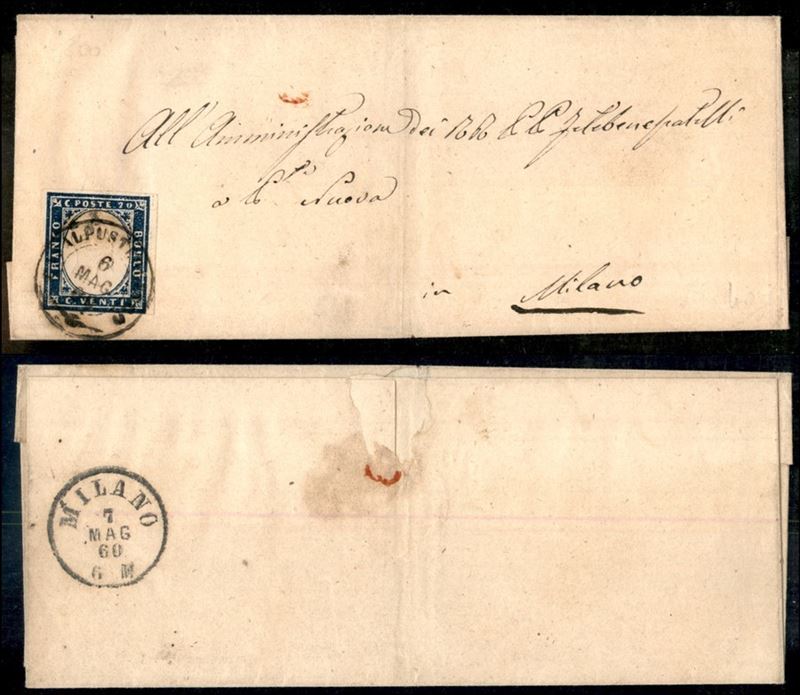 All' Amministrazione dei
a Nuova
in Milano
C. POSTE. 20
FRANCO
BOLLO
C. VENTI
6
MAG
MILANO
7
MAG
60
6 M